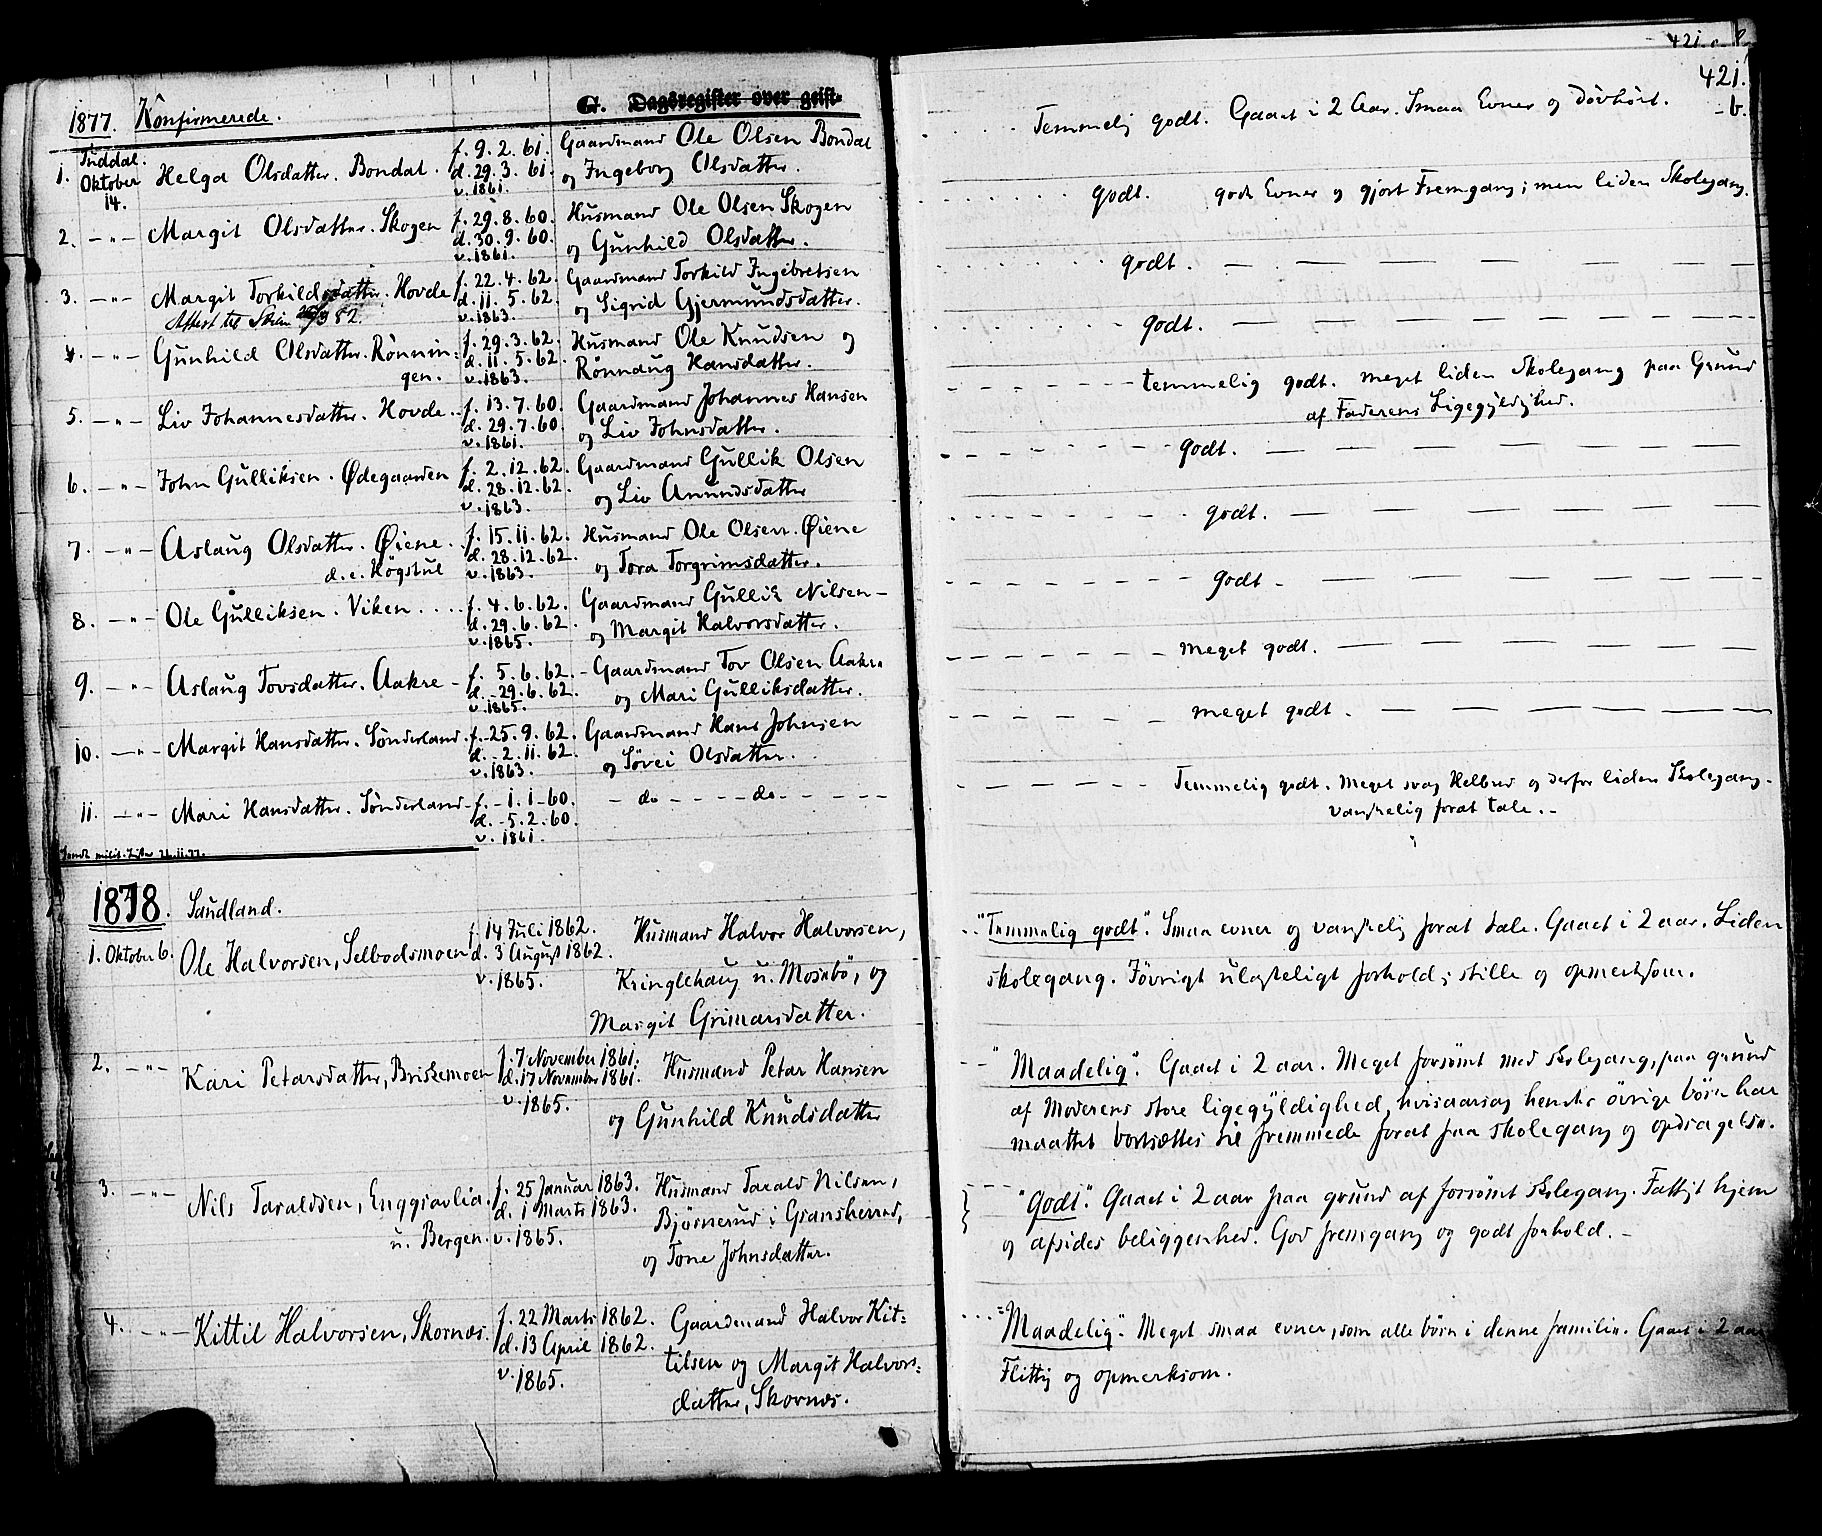 421.
421.
b.
G. Dagsregister over geist-
1877. Konfirmerede.
Tuddal.
1. Oktober 14. Helga Olsdatter. Bondal. f. 9.2.61. Gaardmand Ole Olsen Bondal
d. 29.3.61. og Ingeborg Olsdatter.
v. 1861.
Temmelig godt. Gaaet i 2 Aar. Smaa Evner og døvhørt.
2. -"- Margit Olsdatter. Skogen f. 29.8.60. Husmand Ole Olsen Skogen
d. 30.9.60. og Gunhild Olsdatter.
v. 1861.
godt. gode Evner og gjort Fremgang; men liden Skolegang.
3. -"- Margit Torkildsdatter. Hovde f. 22.4.62. Gaardmand Torkild Ingebretsen
Attest til Skien 82. d. 11.5.62. og Sigrid Gjermundsdatter.
v. 1863.
godt. — — — — — — —
4. -"- Gunhild Olsdatter. Rønnin= f. 29.3.62. Husmand Ole Knudsen og
gen. d. 11.5.62. Rønnaug Hansdatter.
v. 1863.
godt. — — — — — — —
5. -"- Liv Johannesdatter. Hovde.. f. 13.7.60. Gaardmand Johannes Hansen
d. 29.7.60. og Liv Johnsdatter.
v. 1861.
temmelig godt. meget liden Skolegang paa Grund
af Faderens Ligegyldighed.
6. -"- John Gulliksen. Ødegaarden f. 2.12.62. Gaardmand Gullik Olsen
d. 28.12.62. og Liv Anundsdatter
v. 1863.
godt. — — — — — — —
7. -"- Aslaug Olsdatter. Øiene. f. 15.11.62. Husmand Ole Olsen. Øiene
d.e. Høgstul d. 28.12.62. og Tora Torgrimsdatter.
v. 1863.
godt. — — — — — — —
8. -"- Ole Gulliksen. Viken.... f. 4.6.62. Gaardmand Gullik Nilsen-
d. 29.6.62. og Margit Halvorsdatter.
v. 1865.
godt - — — — — — —
9. -"- Aslaug Tovsdatter. Aakre - f. 5.6.62.- Gaardmand Tov Olsen Aakre
d.-29.6.62. og Mari Gulliksdatter.
v. 1865.
meget godt. — — — — —
10. -"- Margit Hansdatter. Sønderland. f.-25.9.62. Gaardmand Hans Johnsen
d.-2.11.62. og Søvei Olsdatter.
v. 1863.
meget godt. — — — — —
11. -"- Mari Hansdatter. Sønderland- f.-1.1-60. - do - - - - do- - - - -
d.-5.2.60.
v. 1861.
Temmelig godt. Meget svag Helbred og derfor liden Skolegang-
vanskelig forat tale.-
Sendt milit. Lister 21.11.77.
1878. Saudland.
1. Oktober 6. Ole Halvorsen, Selbodsmoen f. 14 Juli 1862. Husmand Halvor Halvorsen,
d. 3 August 1862. Kringlehaug u. Mosebø, og
v. 1865. Margit Grimarsdatter.
"Temmelig godt". Smaa evner og vanskelig forat tale. Gaaet i 2 aar. Liden
skolegang. Iøvrigt ulasteligt forhold; stille og opmerksom.
2. -"- Kari Petersdatter, Briskemoen f. 7 November 1861. Husmand Peter Hansen
d. 17 November 1861. og Gunhild Knudsdatter
v. 1865.
"Maadelig". Gaaet i 2 aar. Meget forsømt med skolegang, paa grund
af Moderens store ligegyldighed, hvisaarsag hendes øvrige børn har
maattet bortsættes til fremmede forat faa skolegang og opdragelse.
3. -"- Nils Taraldsen, Enggravlia. f. 25 Januar 1863. Husmand Tarald Nilsen,
u. Bergen. d. 1 Marts 1863. Bjørnerud i Gransherred,
v. 1865. og Tone Johnsdatter.
"Godt". Gaaet i 2 aar paa grund af forsømt skolegang. Fattigt hjem
og afsides beliggenhed. God fremgang og godt forhold.-
4. -"- Kittil Halvorsen, Skornæs. f. 22 Marts 1862. Gaardmand Halvor Kit=
d. 13 April 1862. tilsen og Margit Halvors=
v. 1865. datter, Skornæs.
"Maadelig". Meget smaa evner, som alle børn i denne familie. Gaaet i 2 aar
Flittig og opmerksom.